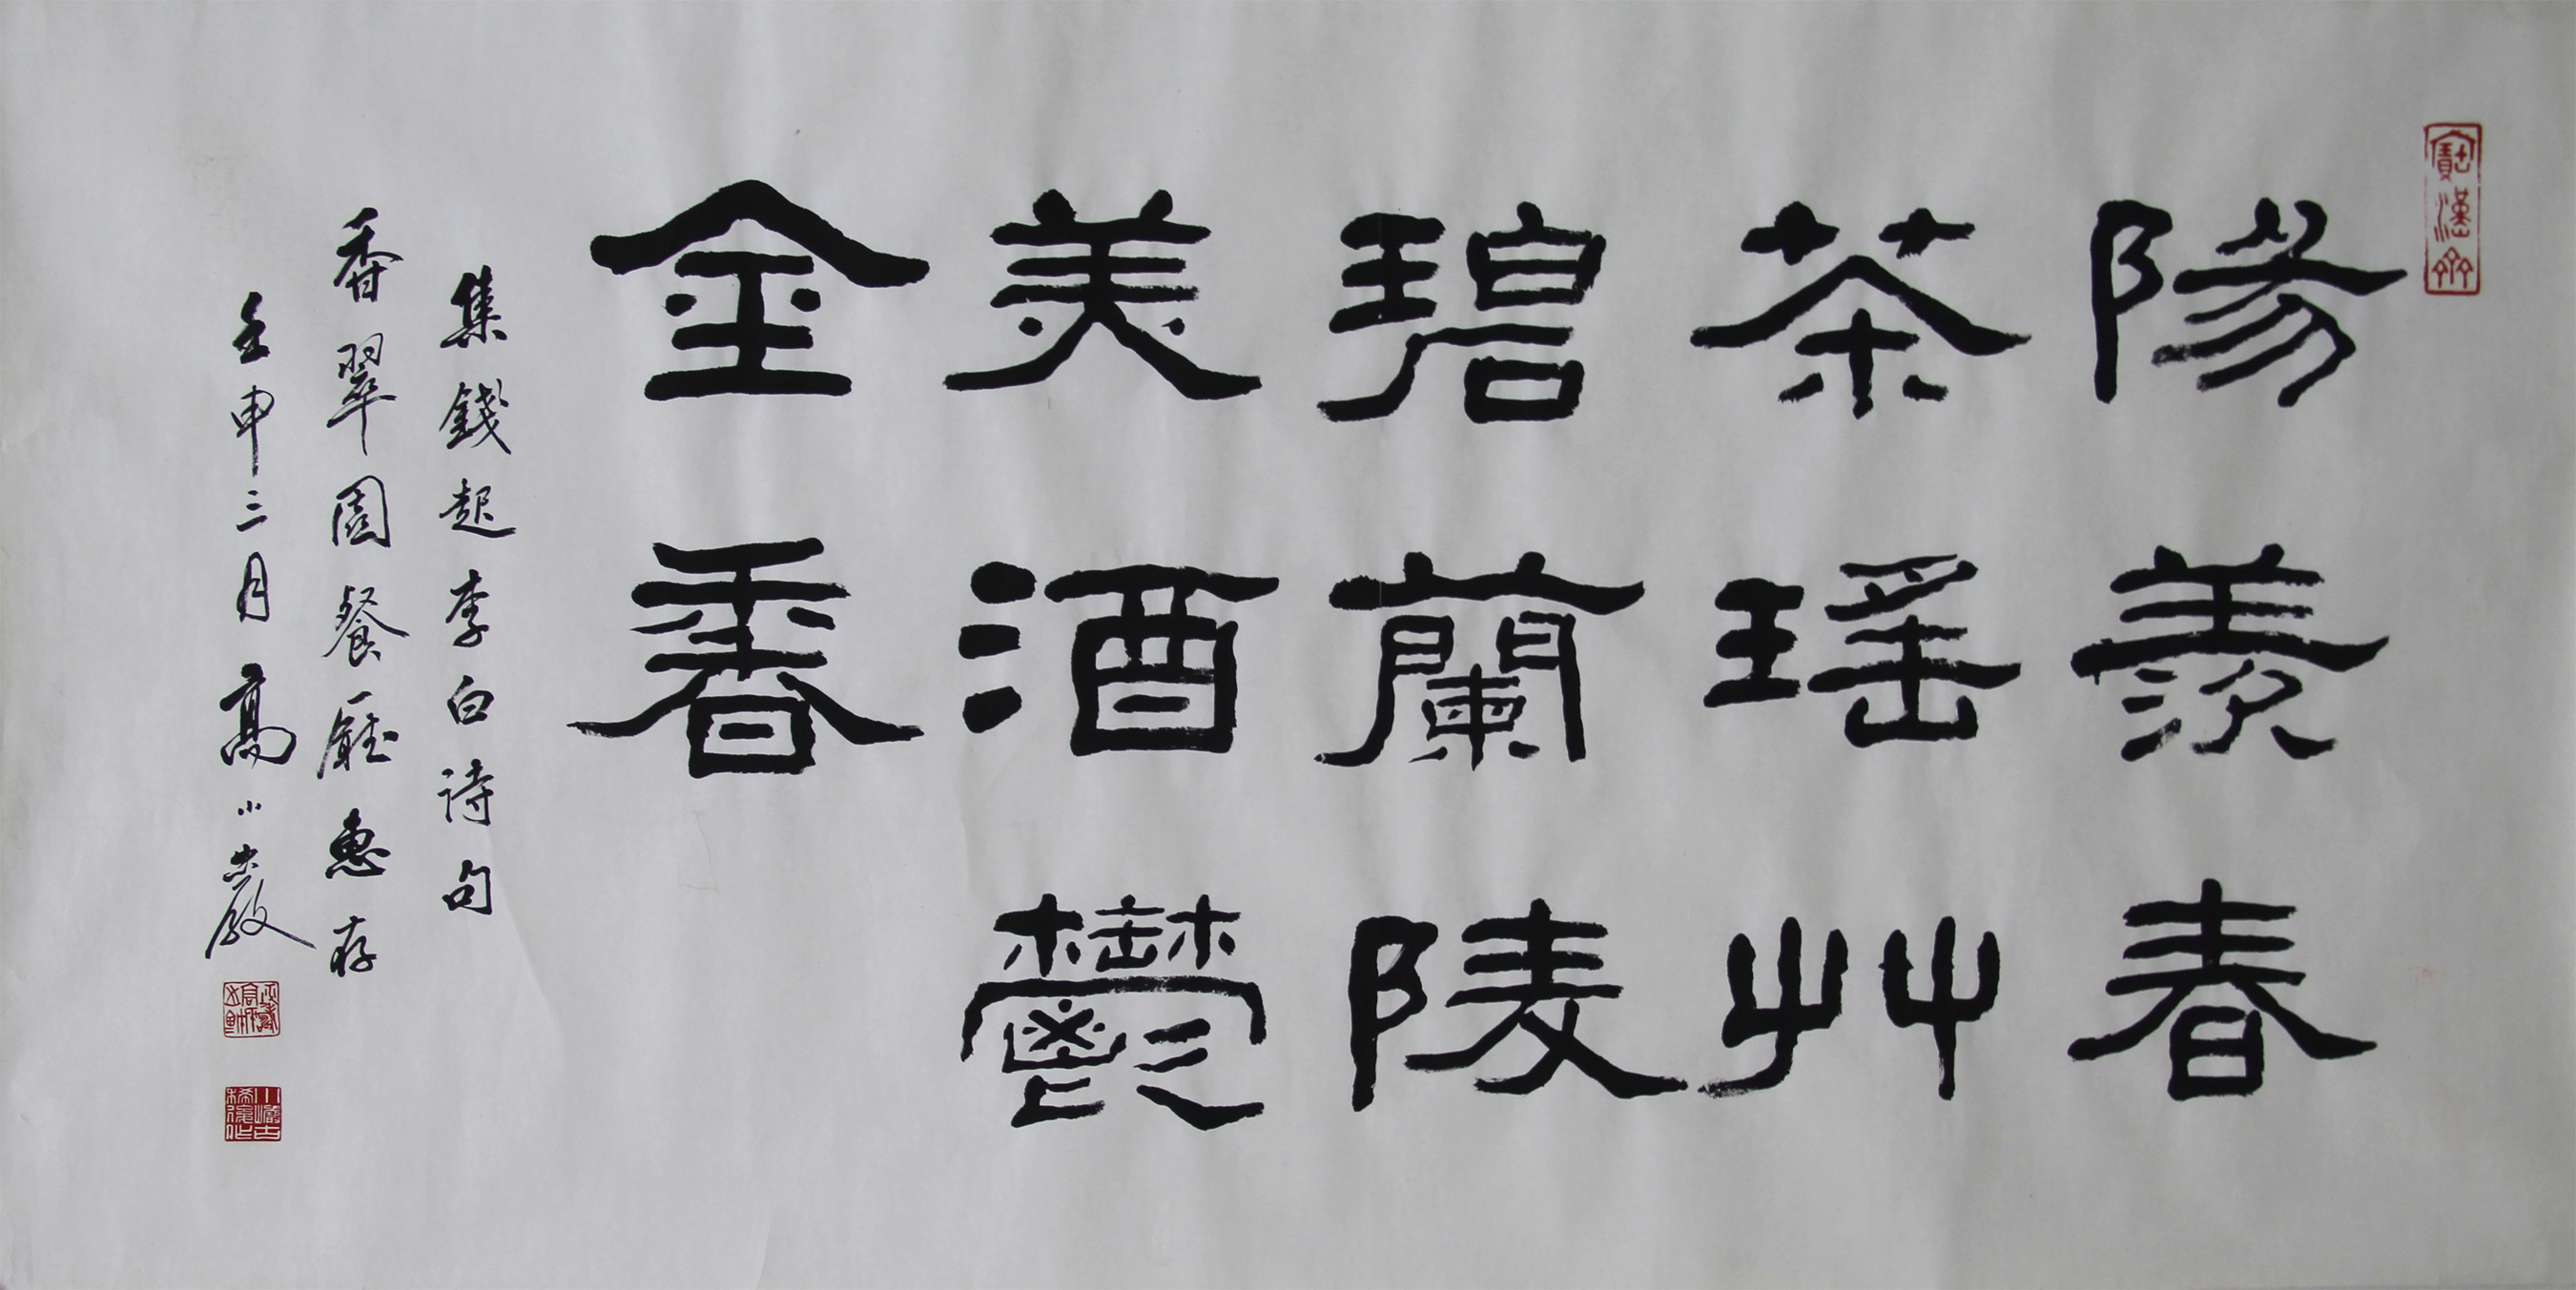 寶漢齋
陽羨春
茶瑤艸
碧蘭陵
美酒鬱
金香
集錢起李白詩句
香翠園餐廳惠存
壬申三月高小巖